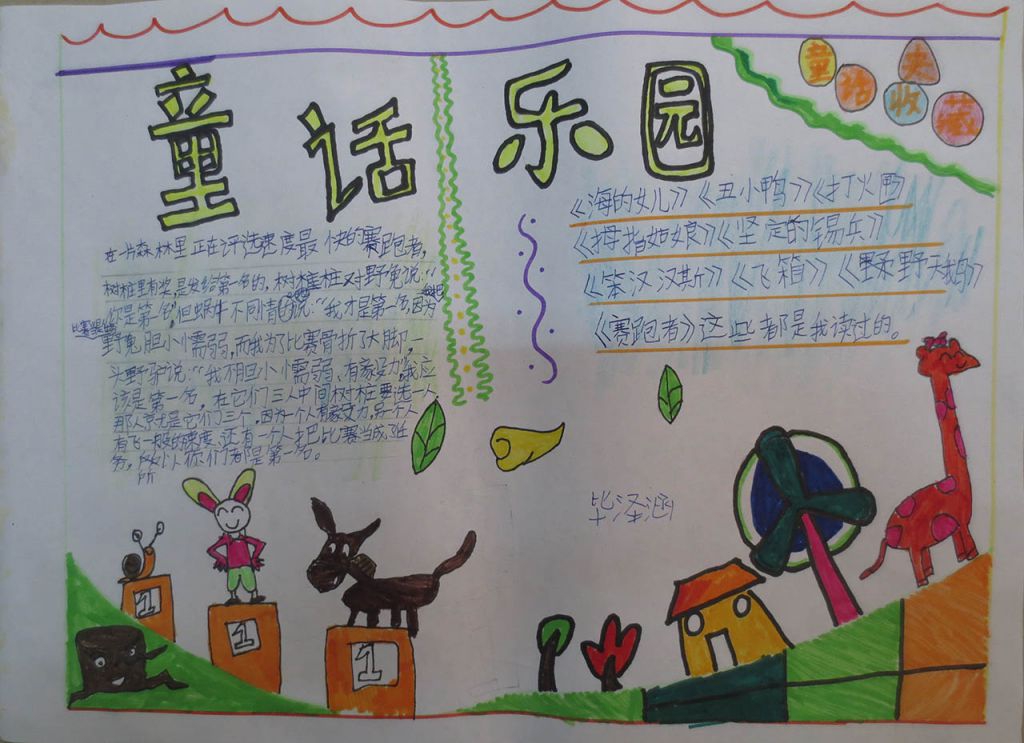 童话乐园
童话大收藏
在一片森林里正在评选速度最快的赛跑者,
树桩里有奖,是发给第一名的,树桩桩对野兔说:“
你是第一名”,但蜗牛不同情的说:“我才是第一名,因为
比赛是
野兔胆小懦弱,而我为了比赛骨折了大脚,一
头野驴说:“我不胆小懦弱、有家没力,我应
该是第一名,在它们三人中间树桩要选一人
那人就是它们三个,因为一个人有家没力,另一个人
有飞一般的速度、还有一个人才把比赛当成了任
务,所以你们都是第一名。
所
《海的女儿》《丑小鸭》《打火匣》
《拇指姑娘》《坚定的锡兵》
《笨汉汉斯》《飞箱》《野天鹅》
《赛跑者》这些都是我读过的。
毕泽涵
1
1
1